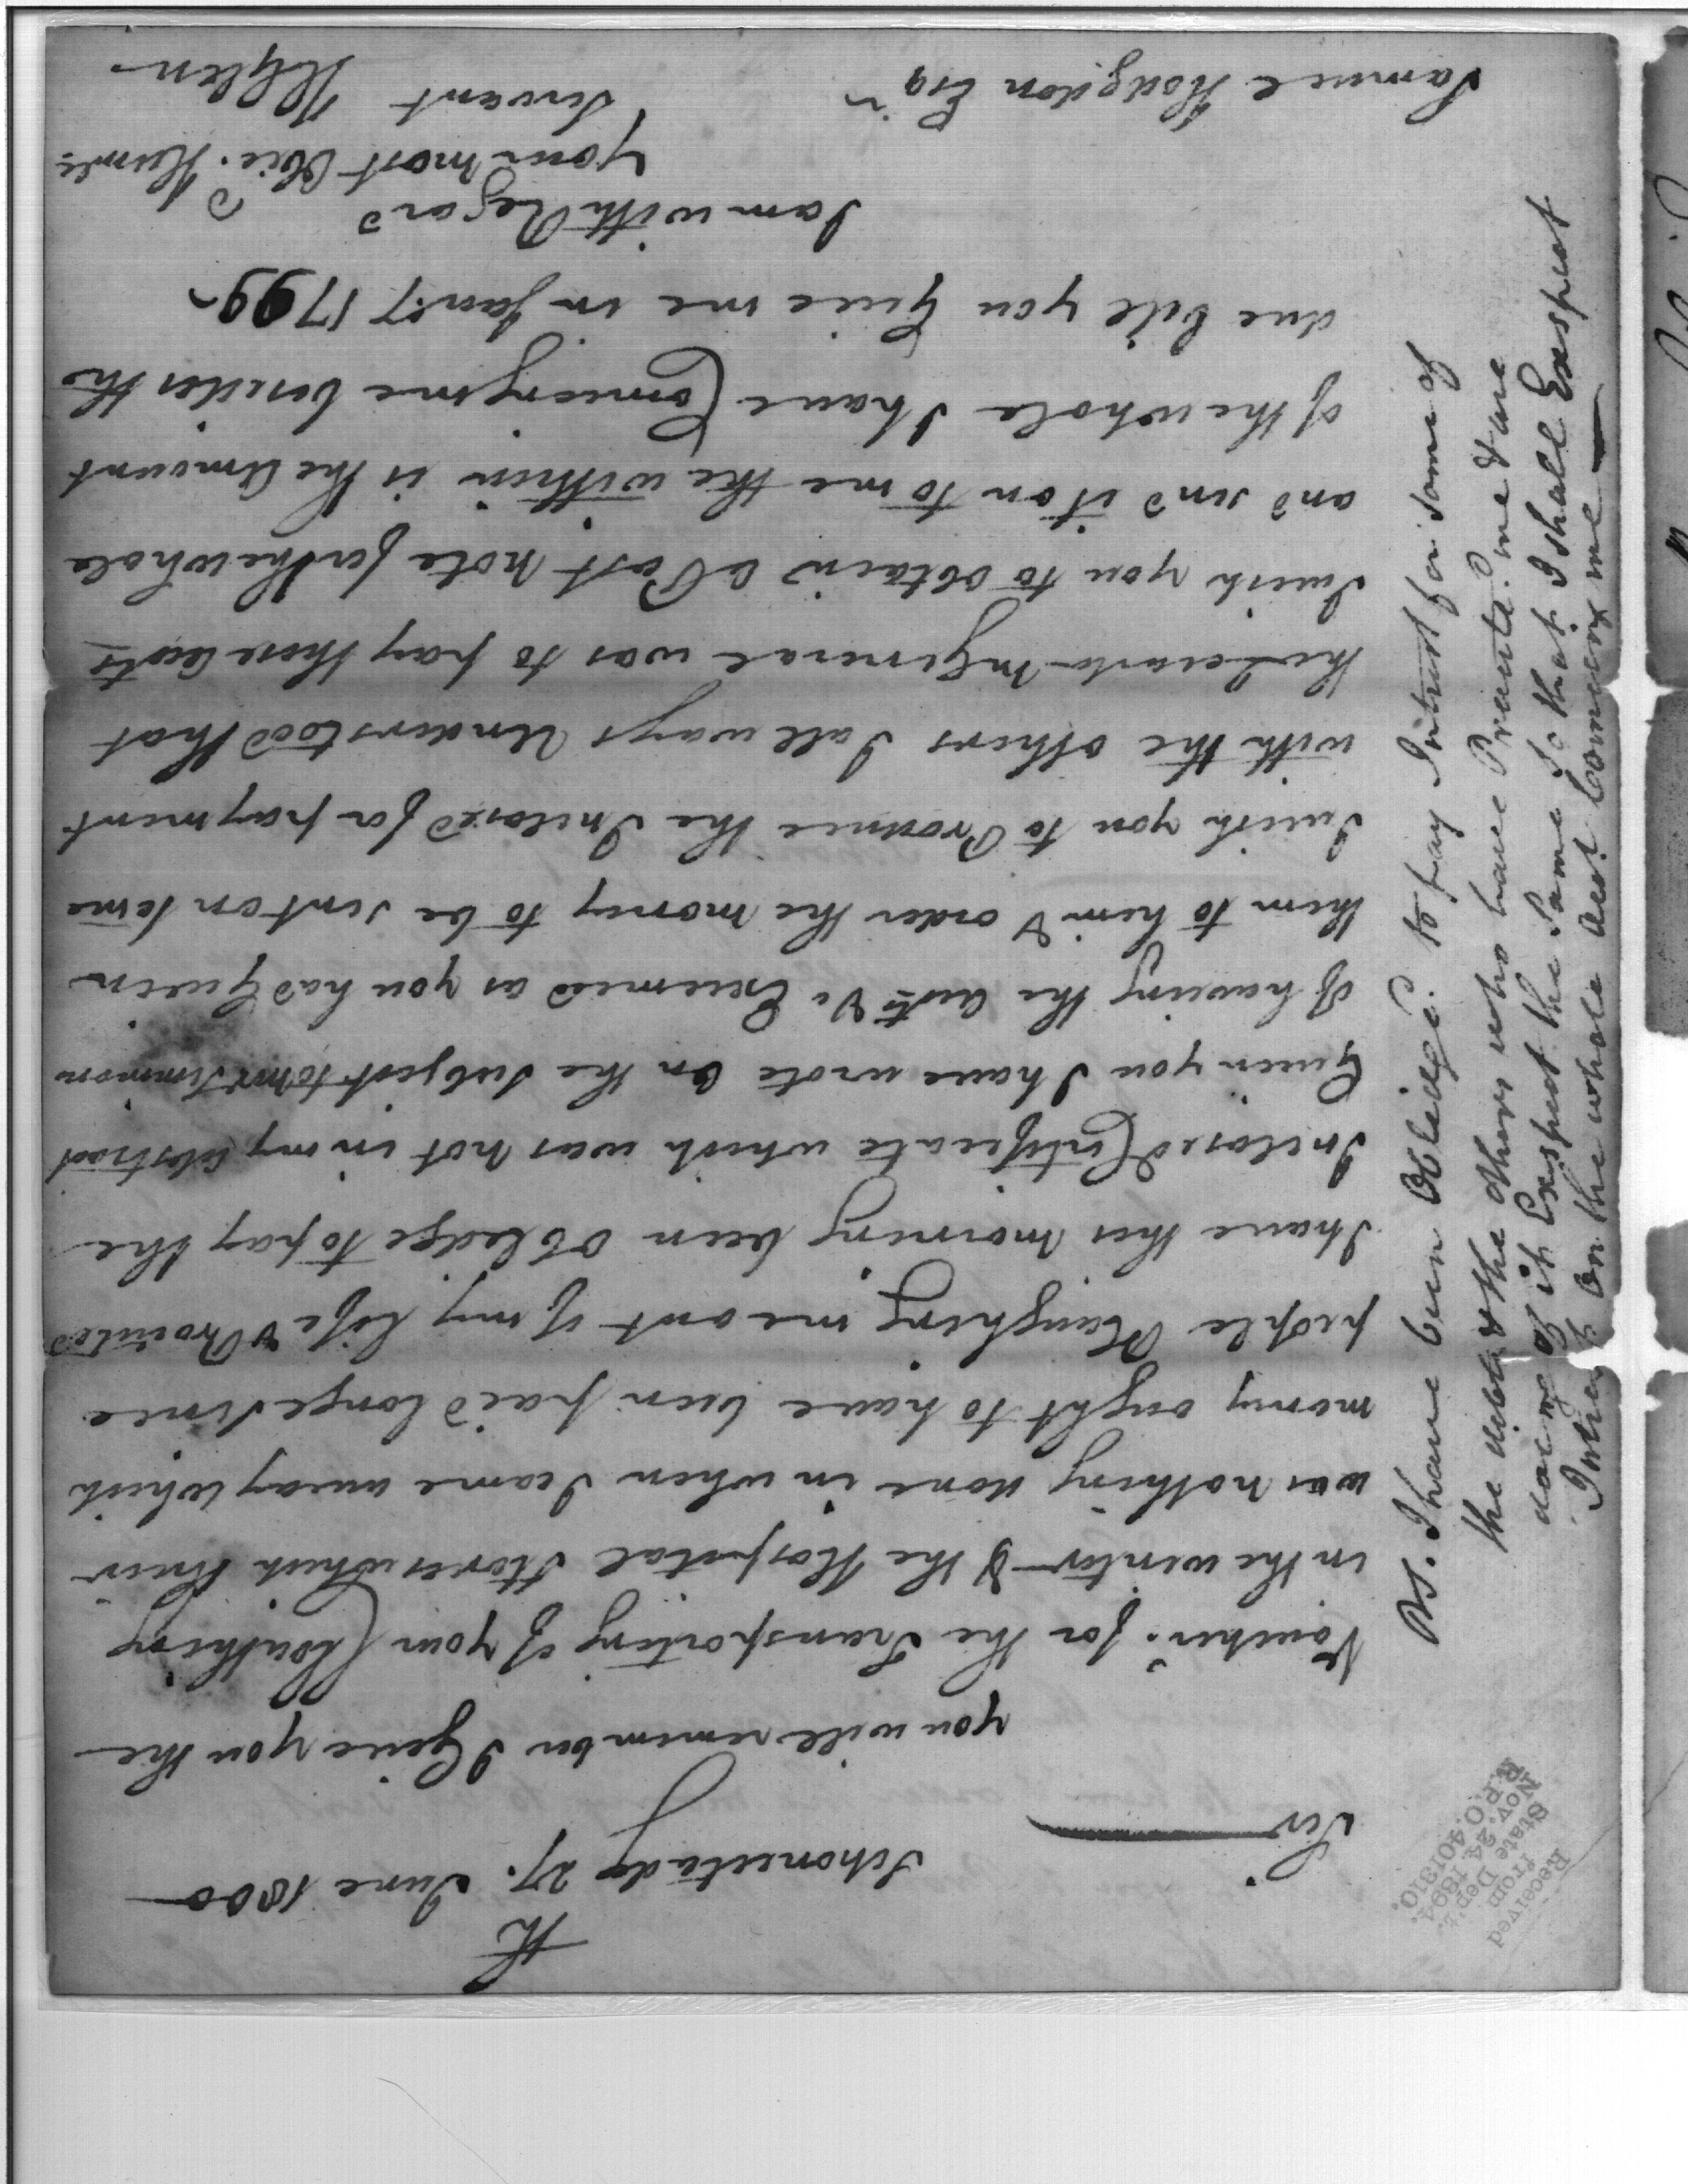 Schonectady 27th. June 1800
Sir
you will remember I Give you the
Voucher. for the Transporting of your Cloathing
in the winter & the Hospital Stores which their
was nothing done in when I came away which
money ought to have been paid longe Since
people Plaughing me out of my life &
I have this morning been Obledge to pay the
Inclosed Certifecate which was not in my abstract
Given you I have wrote on the Subject to Mr Simmons
of haveing the Acts & Exsemined as you had Given
them to him & order the money to be sent on to me
I wish you to Produce the Inclosed for payment
with the others I all ways Understood that
the in General was to pay those accts
I wish you to obtain a Post note for the whole
and send it on to me the within is the Amount
of the whole I have Comeing me besides the
due bill you Give me in Jany. 1799
I am with Regard
your most Obie. Humle
Servant HGlen
Samuel Hodgsdon Esqr
PS. I have been Obleidged. to pay Intrest for some of
the debts & the others who have Presentd. me & are
doeing it Exspect the Same So that I shall Exspect
Intrest On the whole acct Comeing me
Received
from
State Dep't.
Nov. 24, 1894
R.P.O. 401310.